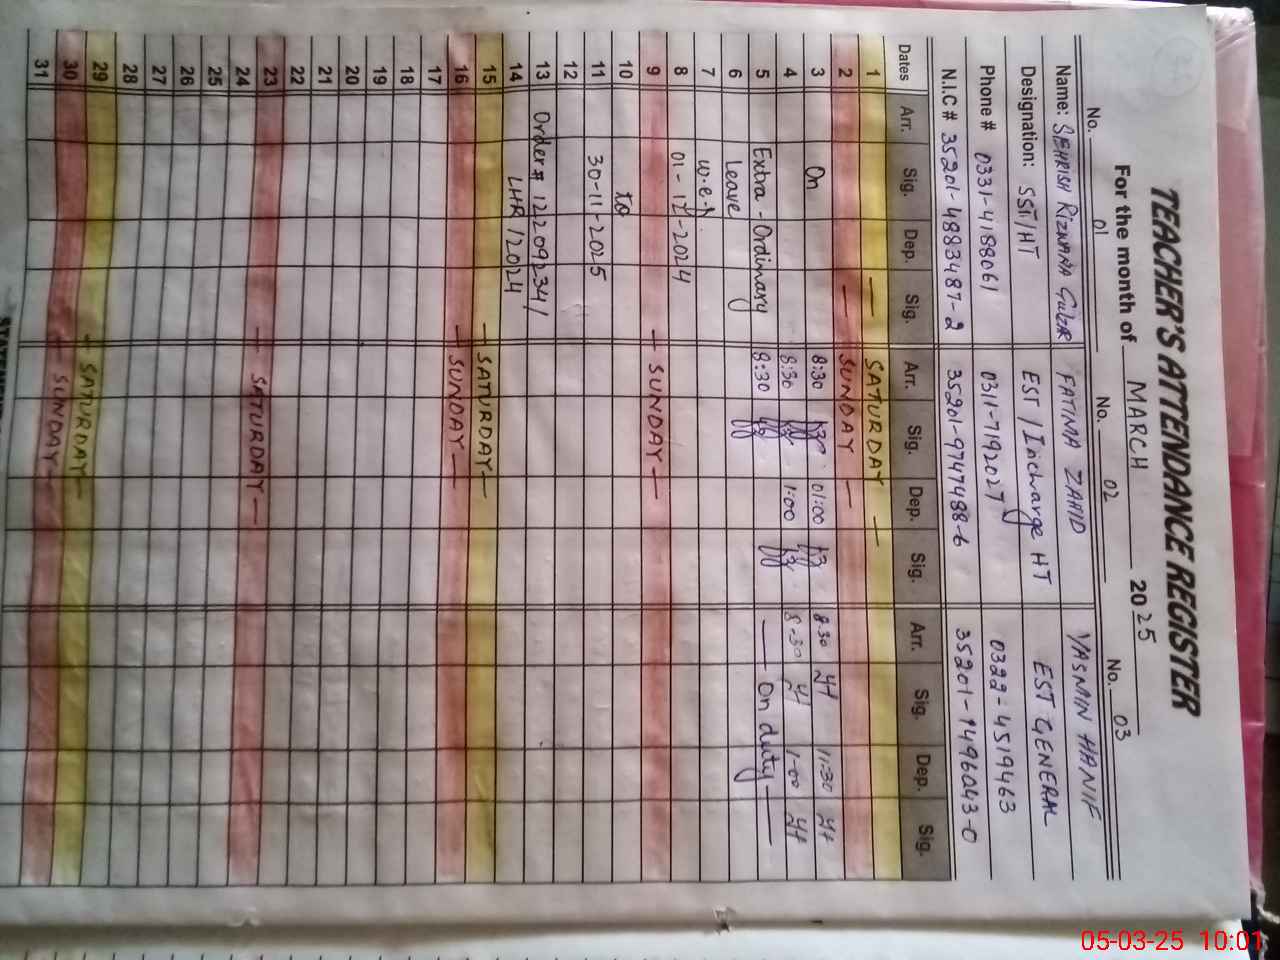 TEACHER'S ATTENDANCE REGISTER
For the month of MARCH 2025
No. 01 No. 02 No. 03
Name: SEHRISH RIZWANA GULZAR FATIMA ZAHID YASMIN HANIF
Designation: SST/HT EST/Incharge HT EST GENERAL
Phone # 0331-4188061 0311-7192027 0322-4519463
N.I.C # 35201-4883487-2 35201-9747488-6 35201-1496043-0
Dates Arr. Sig. Dep. Sig. Arr. Sig. Dep. Sig. Arr. Sig. Dep. Sig.
1 — SATURDAY —
2 — SUNDAY —
3 On 8:30 01:00 8:30 11:30
4 8:30 1:00 8:30 1:00
5 Extra-Ordinary 8:30 — On duty —
6 Leave
7 w.e.f
8 01-12-2024
9 — SUNDAY —
10 to
11 30-11-2025
12
13 Order# 12209234/
14 LHR/2024
15 — SATURDAY —
16 — SUNDAY —
17
18
19
20
21
22
23 — SATURDAY —
24
25
26
27
28
29 — SATURDAY —
30 — SUNDAY —
31
05-03-25 10:01